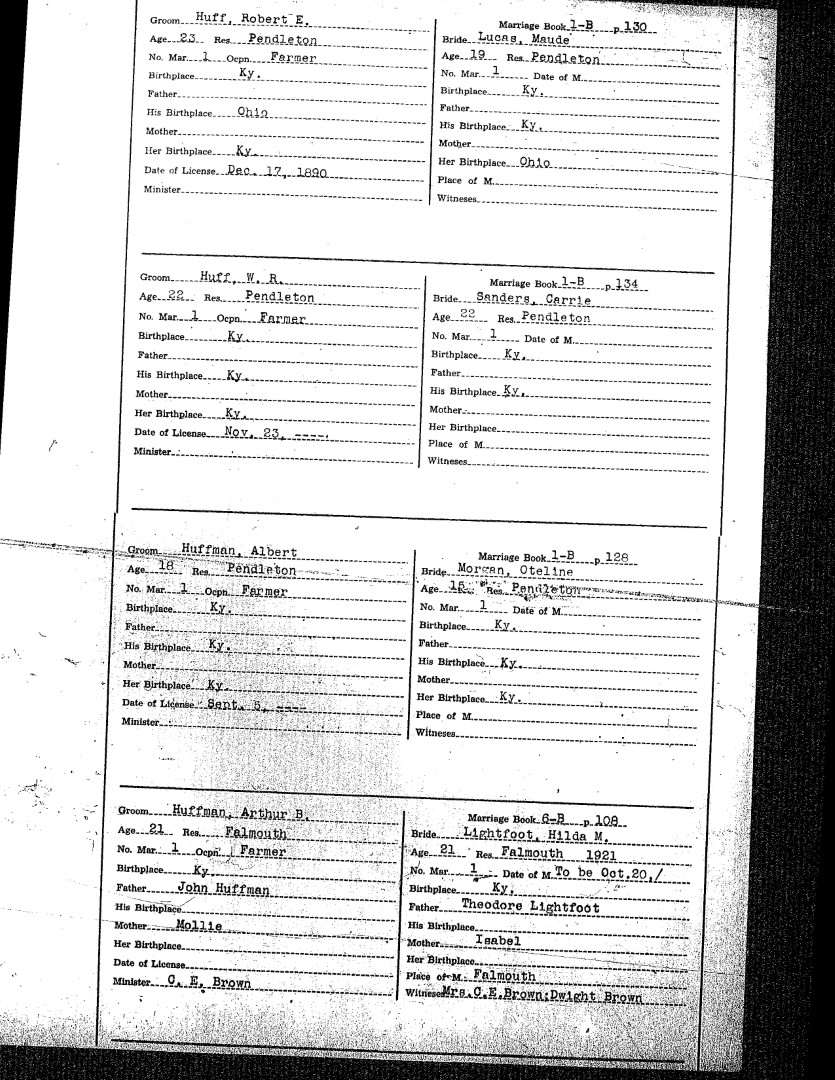 Groom Huff, Robert E.
Age 23 Res. Pendleton
No. Mar. 1 Ocpn. Farmer
Birthplace Ky.
Father
His Birthplace Ohio
Mother
Her Birthplace Ky.
Date of License Dec. 17, 1890
Minister
Marriage Book 1-B p. 130
Bride Lucas, Maude
Age 19 Res. Pendleton
No. Mar. 1 Date of M.
Birthplace Ky.
Father
His Birthplace Ky.
Mother
Her Birthplace Ohio
Place of M.
Witneses
Groom Huff, W. R.
Age 22 Res. Pendleton
No. Mar. 1 Ocpn. Farmer
Birthplace Ky.
Father
His Birthplace Ky.
Mother
Her Birthplace Ky.
Date of License Nov. 23, ----.
Minister
Marriage Book 1-B p. 134
Bride Sanders, Carrie
Age 22 Res. Pendleton
No. Mar. 1 Date of M.
Birthplace Ky.
Father
His Birthplace Ky.
Mother
Her Birthplace
Place of M.
Witneses
Groom Huffman, Albert
Age 18 Res. Pendleton
No. Mar. 1 Ocpn. Farmer
Birthplace Ky.
Father
His Birthplace Ky.
Mother
Her Birthplace Ky.
Date of License Sept. 5, ----
Minister
Marriage Book 1-B p. 128
Bride Morgan, Oteline
Age 15 Res. Pendleton
No. Mar. 1 Date of M.
Birthplace Ky.
Father
His Birthplace Ky.
Mother
Her Birthplace Ky.
Place of M.
Witneses
Groom Huffman, Arthur B.
Age 21 Res. Falmouth
No. Mar. 1 Ocpn. Farmer
Birthplace Ky
Father John Huffman
His Birthplace
Mother Mollie
Her Birthplace
Date of License
Minister C. E. Brown
Marriage Book 6-B p. 108
Bride Lightfoot, Hilda M.
Age 21 Res. Falmouth 1921
No. Mar. 1 Date of M. To be Oct.20,/
Birthplace Ky.
Father Theodore Lightfoot
His Birthplace
Mother Isabel
Her Birthplace
Place of M. Falmouth
Witneses Mrs.C.E.Brown;Dwight Brown